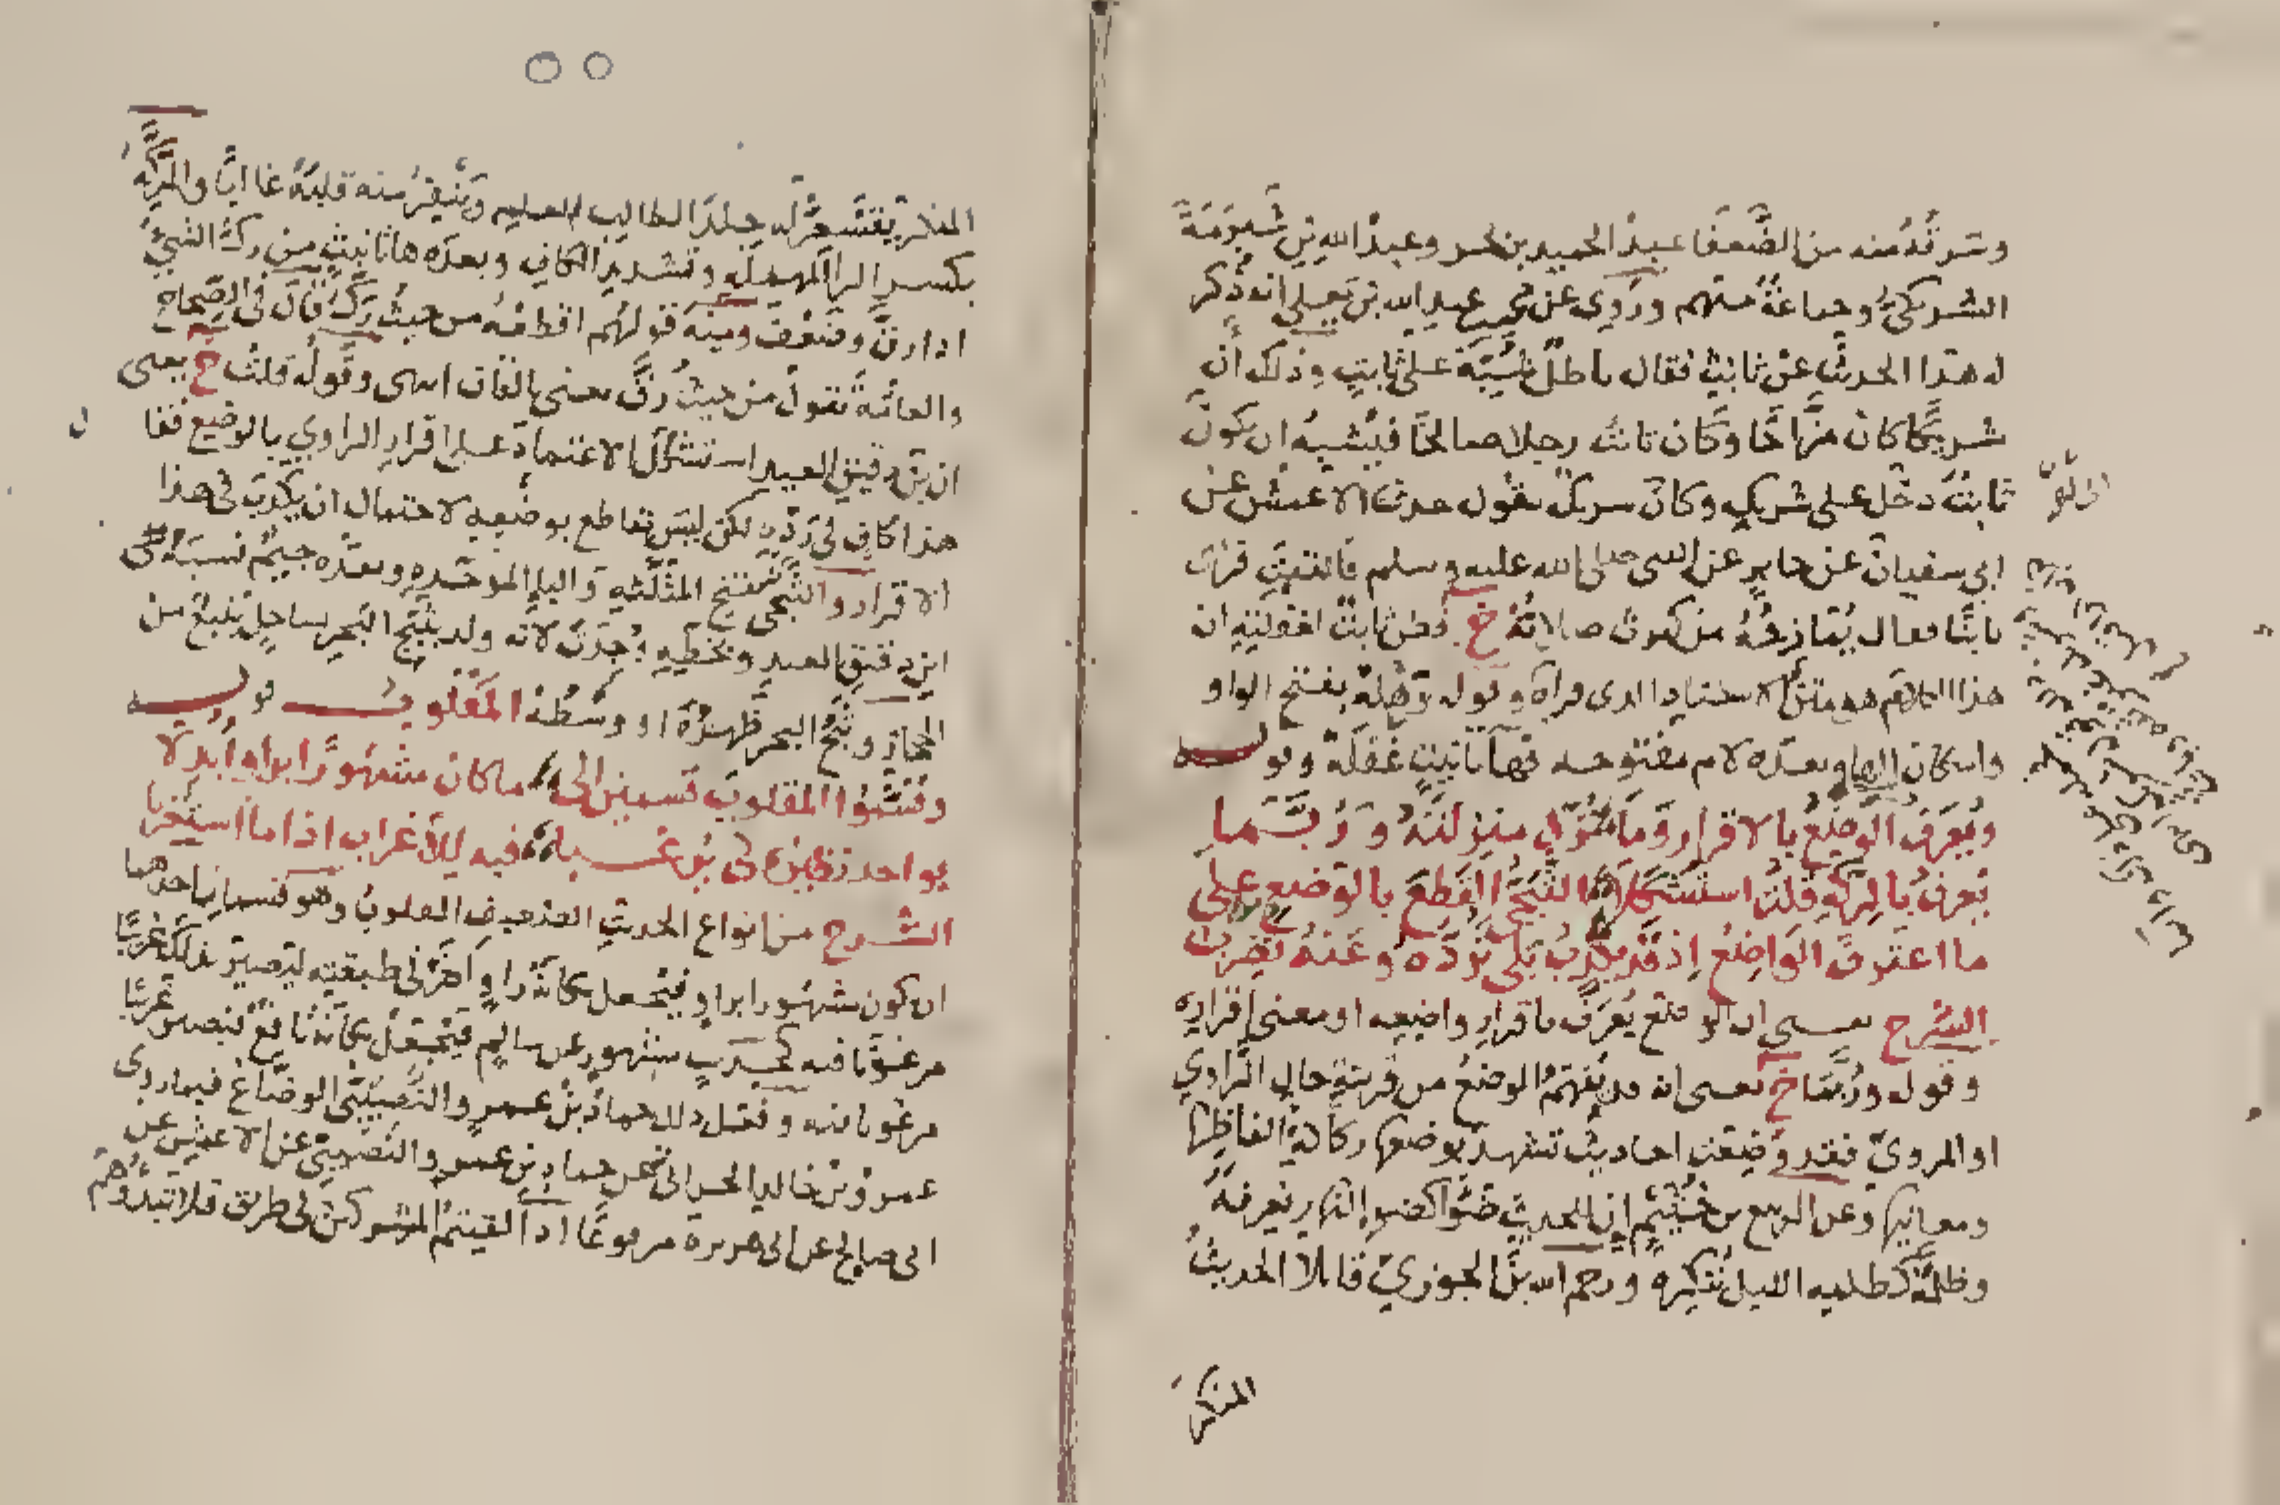 وسرقه منه من الضعفا عبد الحميد بن بحر وعبد الله بن شبرمة
الشريكي وجماعة منهم وروى عن عبد الله بن انه ذكر
له هذا الحديث عن ثابت فقال باطل شبه على ثابت وذلك أن
شريكا كان مزاحا وكان ثابت رجلا صالحا فيشبه ان يكون
ثابت دخل على شريك وكان شريك يقول حدثنا الاعمش عن
ابي سفيان عن جابر عن النبي صلى الله عليه وسلم فالتفت فرأى
ثابتا فقال يمازحه من كثرت صلاته خ فظن ثابت لغفلته ان
هذا الكلام هو متن الاسناد الذي قرأه وقوله وهلة بفتح الواو
واسكان الها وبعده لام مفتوحه فها تانيث غفلة وقوله
ويعرف الوضع بالاقرار وما نزل منزلته وربما
يعرف بالركة قلت استشكلا الثبجي القطع بالوضع على
ما اعترف الواضع إذ قد يكذب بلى نرده وعنه نضرب
الشرح يعني ان الوضع يعرف باقرار واضعه او معنى إقراره
وقوله وربما خ يعني انه قد يفهم الوضع من قرينة حال الراوي
او المروي فقد وضعت احاديث تشهد بوضعها ركاكة الفاظها
ومعانيها وعن الربيع بن خثيم إن للحديث ضوا كضو النهار نعرفه
وظلمة كظلمه الليل ننكره ورحم الله بن الجوزي قائلا الحديث
المنكر
المنكر يقشعر له جلد الطالب للعلم وينفر منه قلبه غالبا والركه
بكسر الرا المهمله وتشديد الكاف وبعده ها تانيث من رك الشيء
اذا رق وضعف ومنه قولهم اقطعه من حيث رك قال في الصحاح
والعامة تقول من حيث رق يعني بالقاف انتهى وقوله قلت خ يعني
ان بن دقيق العيد استشكل الاعتماد على اقرار الراوي بالوضع فقا
ل
هذا كاف في رده لكن ليس بقاطع بوضعه لاحتمال ان يكذب في هذا
الاقرار والثبجي بفتح المثلثه والبا الموحده وبعده جيم نسبة
ابن دقيق العيد وبخطه لانه ولد بثبج البحر بساحل ينبع من
الحجاز وثبج البحر ظهره او وسطه المقلوب قوله
وقسموا المقلوب قسمين الى ما كان مشهورا براو ابدلا
بواحد نظيره كي يرغبا فيه للاغراب اذا ما استغربا
الشرح من انواع الحديث الضعيف المقلوب وهو قسمان احدهما
ان يكون مشهورا براو فيجعل مكانه راو آخر في طبقته ليصير بذلك غريبا
مرغوبا فيه كحديث مشهور عن سالم فيجعل مكانه نافع ليصير غريبا
مرغوبا فيه وفعل ذلك حماد بن عمرو النصيبي الوضاع فيما روى
عمرو بن خالد الحراني عن حماد بن عمرو النصيبي عن الاعمش عن
ابي صالح عن ابي هريرة مرفوعا اذا لقيتم المشركين في طريق فلا تبدؤهم